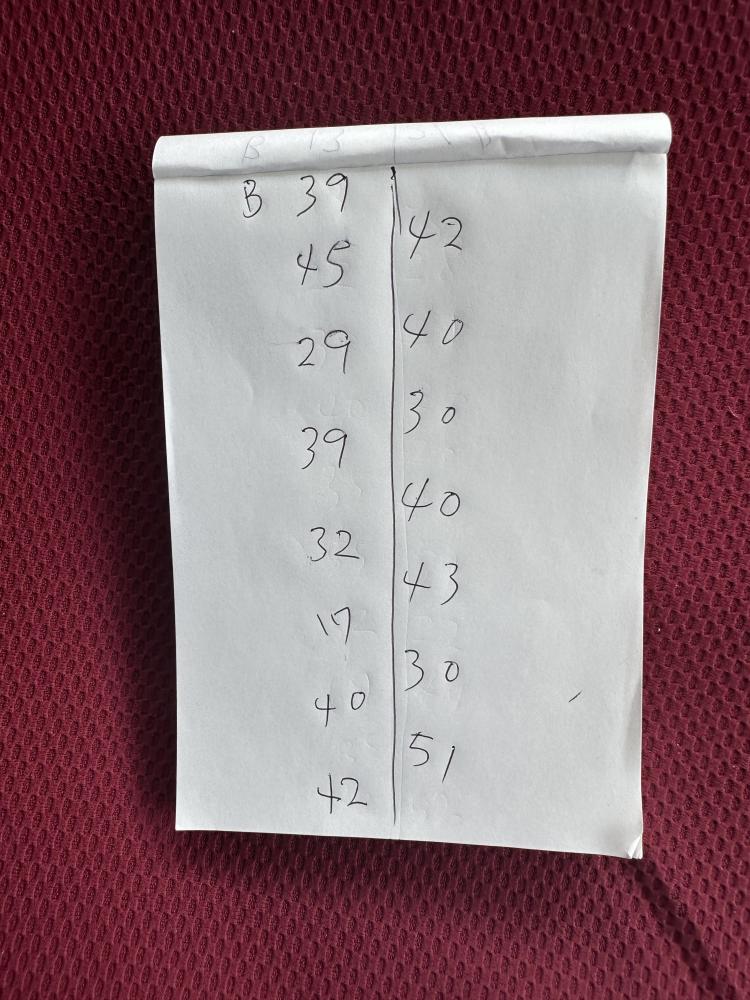 B 39
42
45
40
29
30
39
40
32
43
17
30
40
51
42